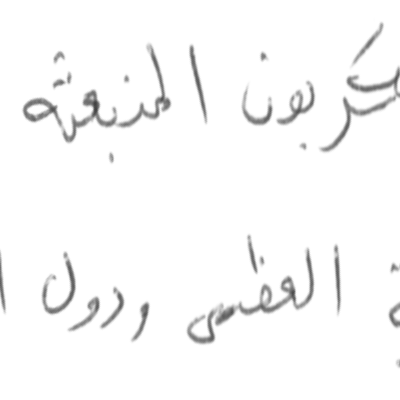 كربون المنبعثة
العظمى ودول